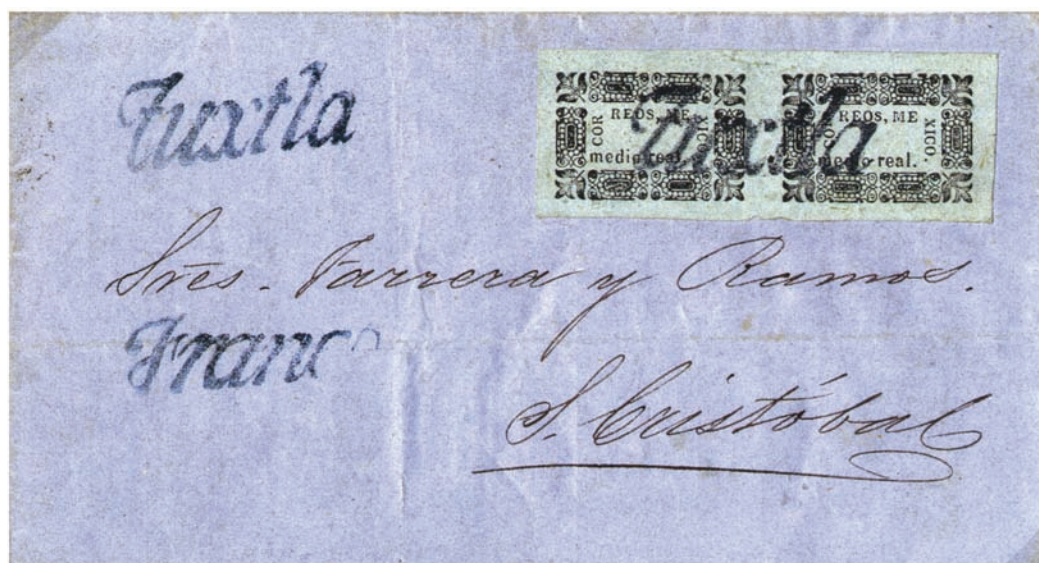 Tuxtla
Tuxtla
CORREOS, MEXICO.
medio real.
CORREOS, MEXICO.
medio real.
Sres. Farrera y Ramos.
Franco
S. Cristóbal